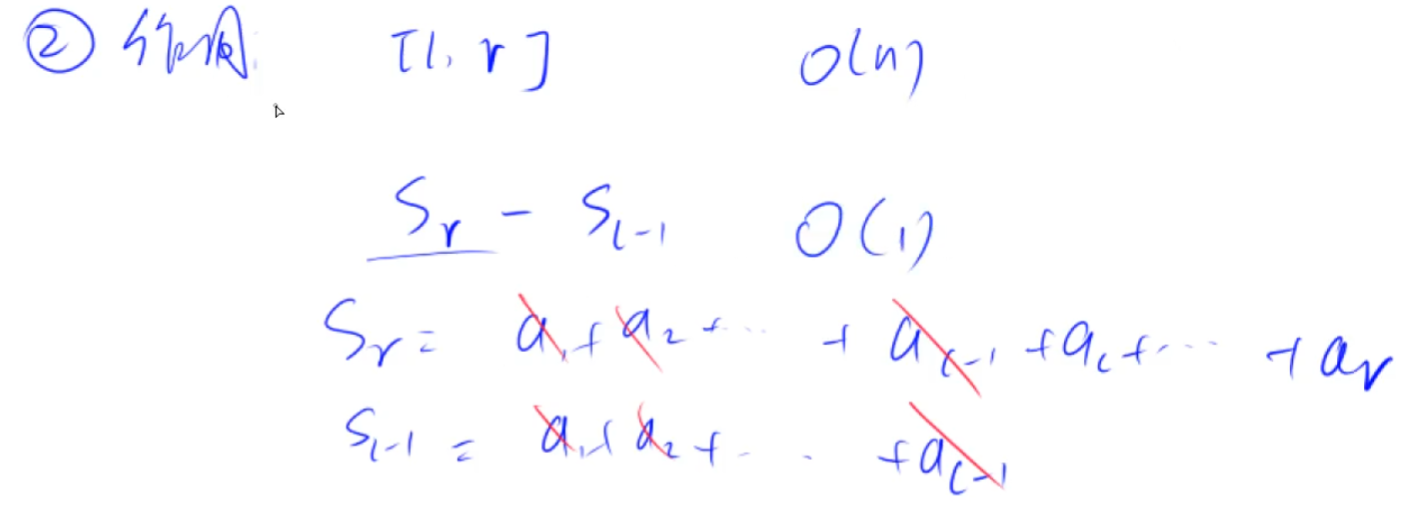 ② 作用: [l, r] O(n)
S_r - S_{l-1} O(1)
S_r = a_1 + a_2 + ... + a_{l-1} + a_l + ... + a_r
S_{l-1} = a_1 + a_2 + ... + a_{l-1}